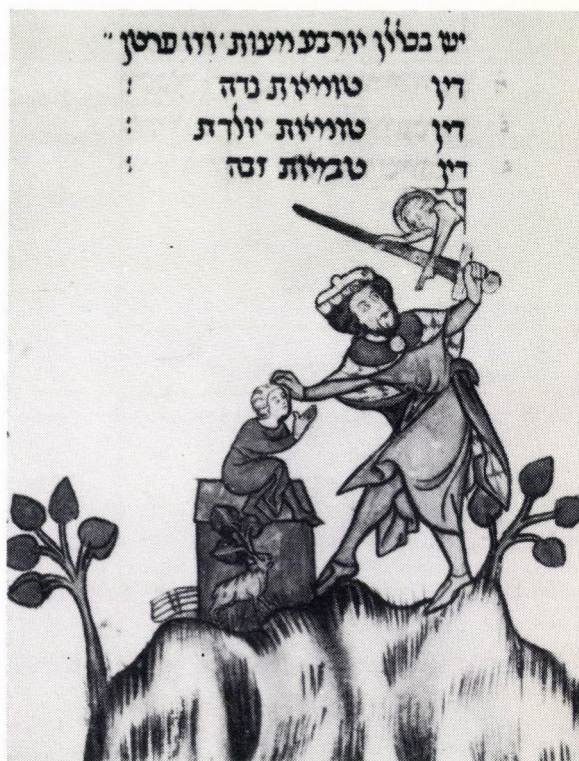 יש בכללן ארבע מצות ׳ וזו פרטן ״
דין טומאת נדה :
דין טומאת יולדת :
דין טומאת זבה :